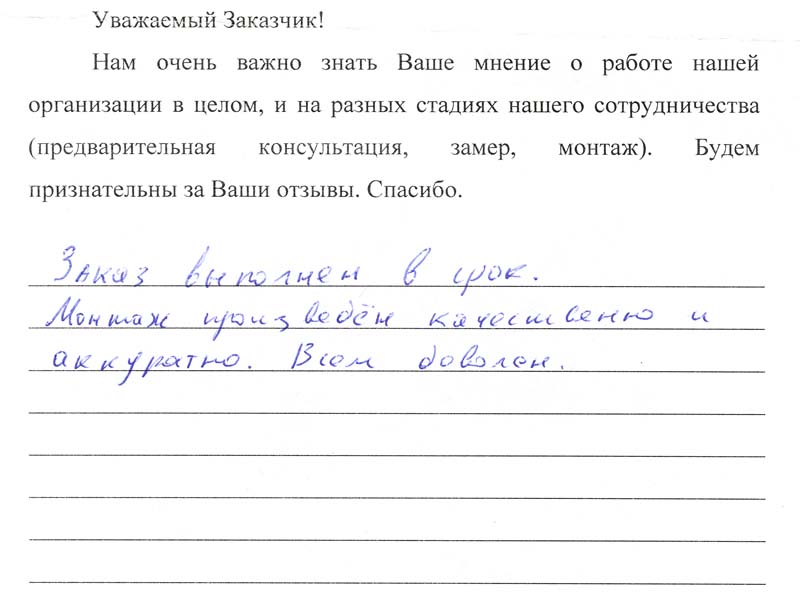 Уважаемый Заказчик!
Нам очень важно знать Ваше мнение о работе нашей
организации в целом, и на разных стадиях нашего сотрудничества
(предварительная консультация, замер, монтаж). Будем
признательны за Ваши отзывы. Спасибо.
Заказ выполнен в срок.
Монтаж произведён качественно и
аккуратно. Всем доволен.